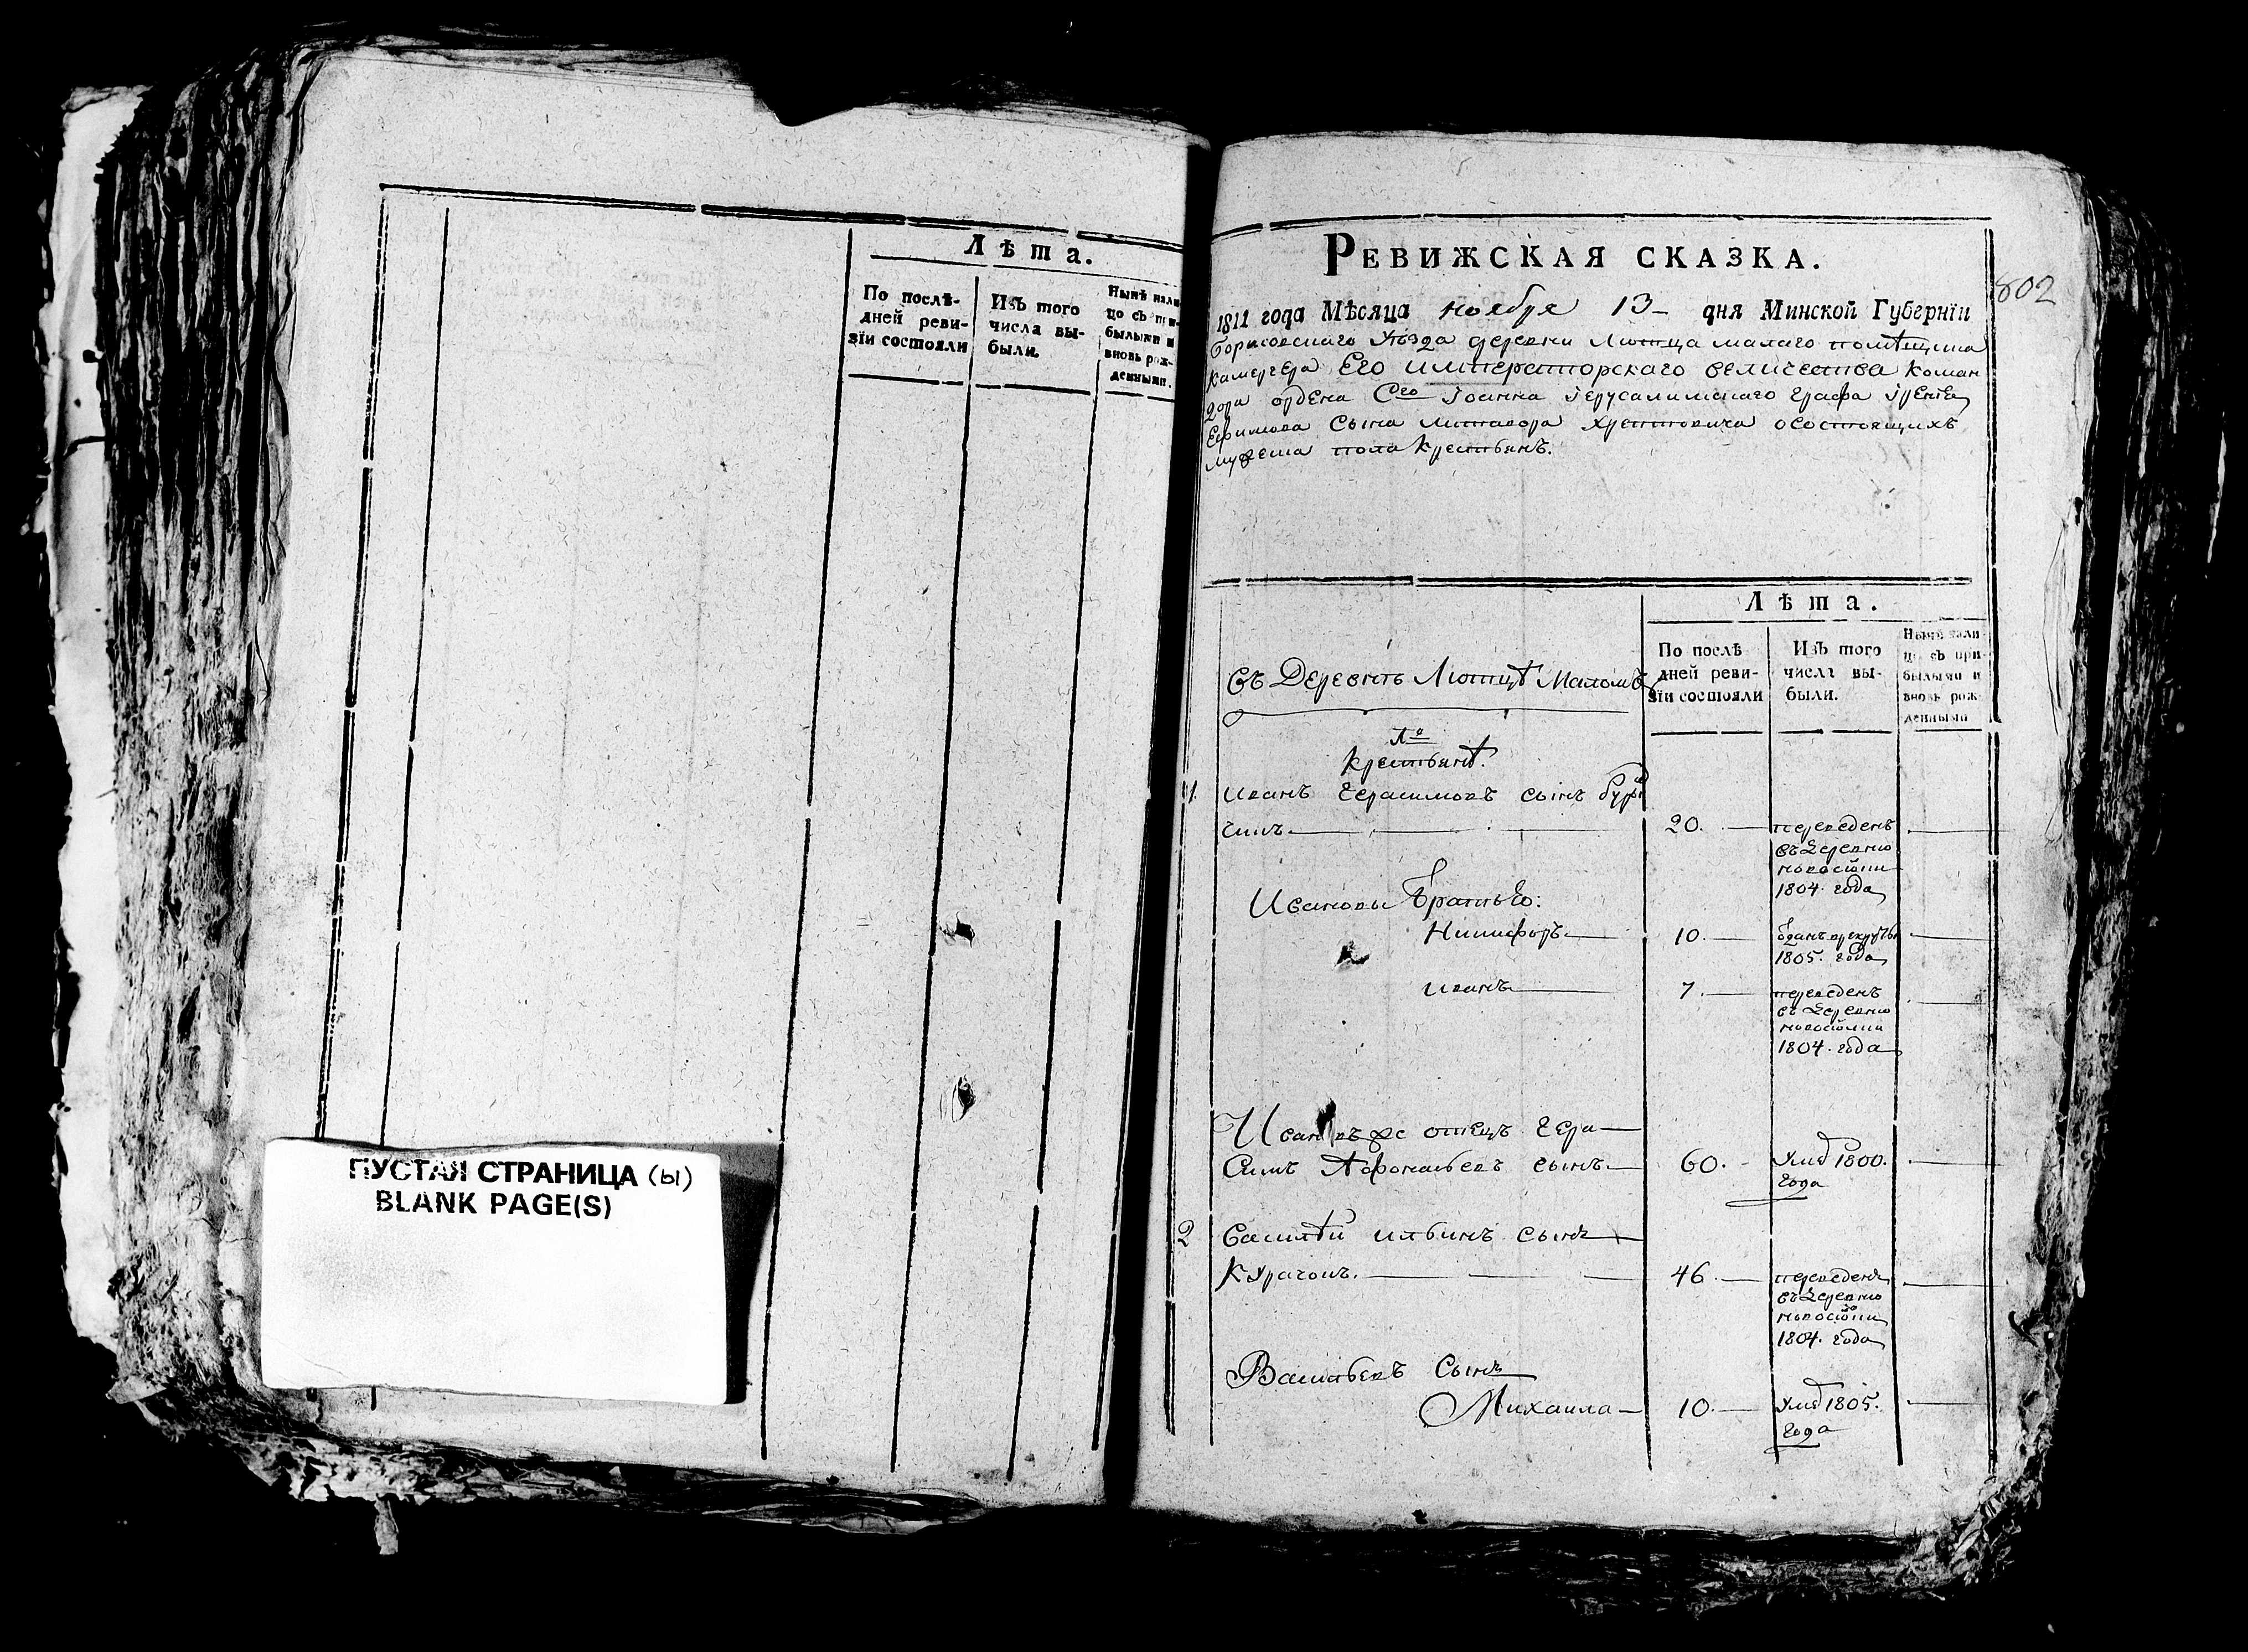 Лѣта.
По послѣ-
дней реви-
зіи состояли
Изъ того
числа вы-
были.
Нынѣ нали
цо съ при-
былыми и
вновь рож-
денными.
ПУСТАЯ СТРАНИЦА (ы)
BLANK PAGE(S)
802
РЕВИЖСКАЯ СКАЗКА.
1811 года Мѣсяца ноября 13 дня Минской Губерніи
Борисовскаго Уѣзда деревни Лютца малаго помѣщика
камергера Его императорскаго величества коман
дора ордена Сго Іоанна Іерусалимскаго графа
Ефимова сына Литавора Хрептовича осостоящихъ
мужеска пола крестьянъ.
Лѣта.
По послѣ
дней реви-
зіи состояли
Изъ того
числа вы-
были.
Нынѣ нали
цо съ при-
былыми и
вновь рож-
денными
Въ Деревнѣ Лютцѣ Маломъ
крестьянѣ.
1. иванъ Герасимовъ сынъ
20. переведенъ
въ деревню
1804. года
Ивановы братьѣ:
Никифоръ 10.
1805. года
иванъ 7. переведенъ
въ деревню
1804. года
Ивановъ же отецъ Гера
симъ Афонасьевъ сынъ 60. умѣ 1800.
года
2 Василѣй ильинъ сынъ
46. переведенъ
въ деревню
1804. года
Васильевъ сынъ
Михаила 10. умѣ 1805.
года